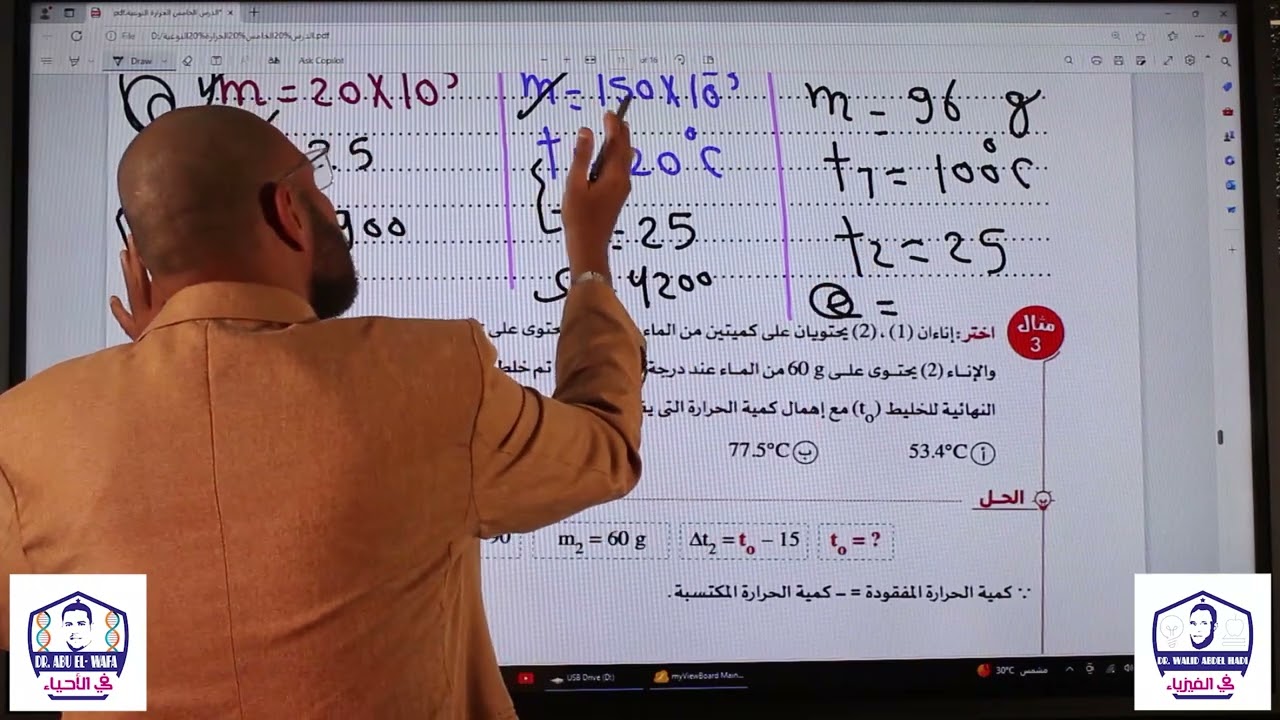 الدرس الخامس الحرارة النوعية.pdf
File D:/الدرس%20الخامس%20الحرارة%20النوعية.pdf
Draw Ask Copilot 11 of 16
m = 20 X 10
m = 150 X 10⁻³
m = 96 g
25
20°C
t1 = 100°C
900
= 25
t2 = 25
4200
Q =
مثال
3
اختر: إناءان (1) ، (2) يحتويان على كميتين من الماء
والإناء (2) يحتوى على 60 g من الماء عند درجة
تم خلط
النهائية للخليط (t₀) مع إهمال كمية الحرارة التى
أ 53.4°C
ب 77.5°C
الحل
t₀ = ?
Δt₂ = t₀ – 15
m₂ = 60 g
90
∵ كمية الحرارة المفقودة = – كمية الحرارة المكتسبة.
USB Drive (D:)
myViewBoard Main...
30°C مشمس
DR. ABU EL- WAFA
في الأحياء
DR. WALID ABDEL HADI
في الفيزياء